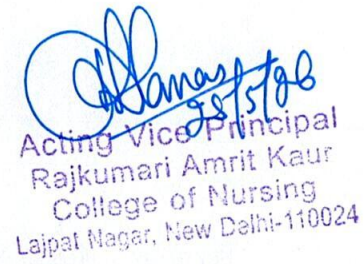 28/5/26
Acting Vice Principal
Rajkumari Amrit Kaur
College of Nursing
Lajpat Nagar, New Delhi-110024